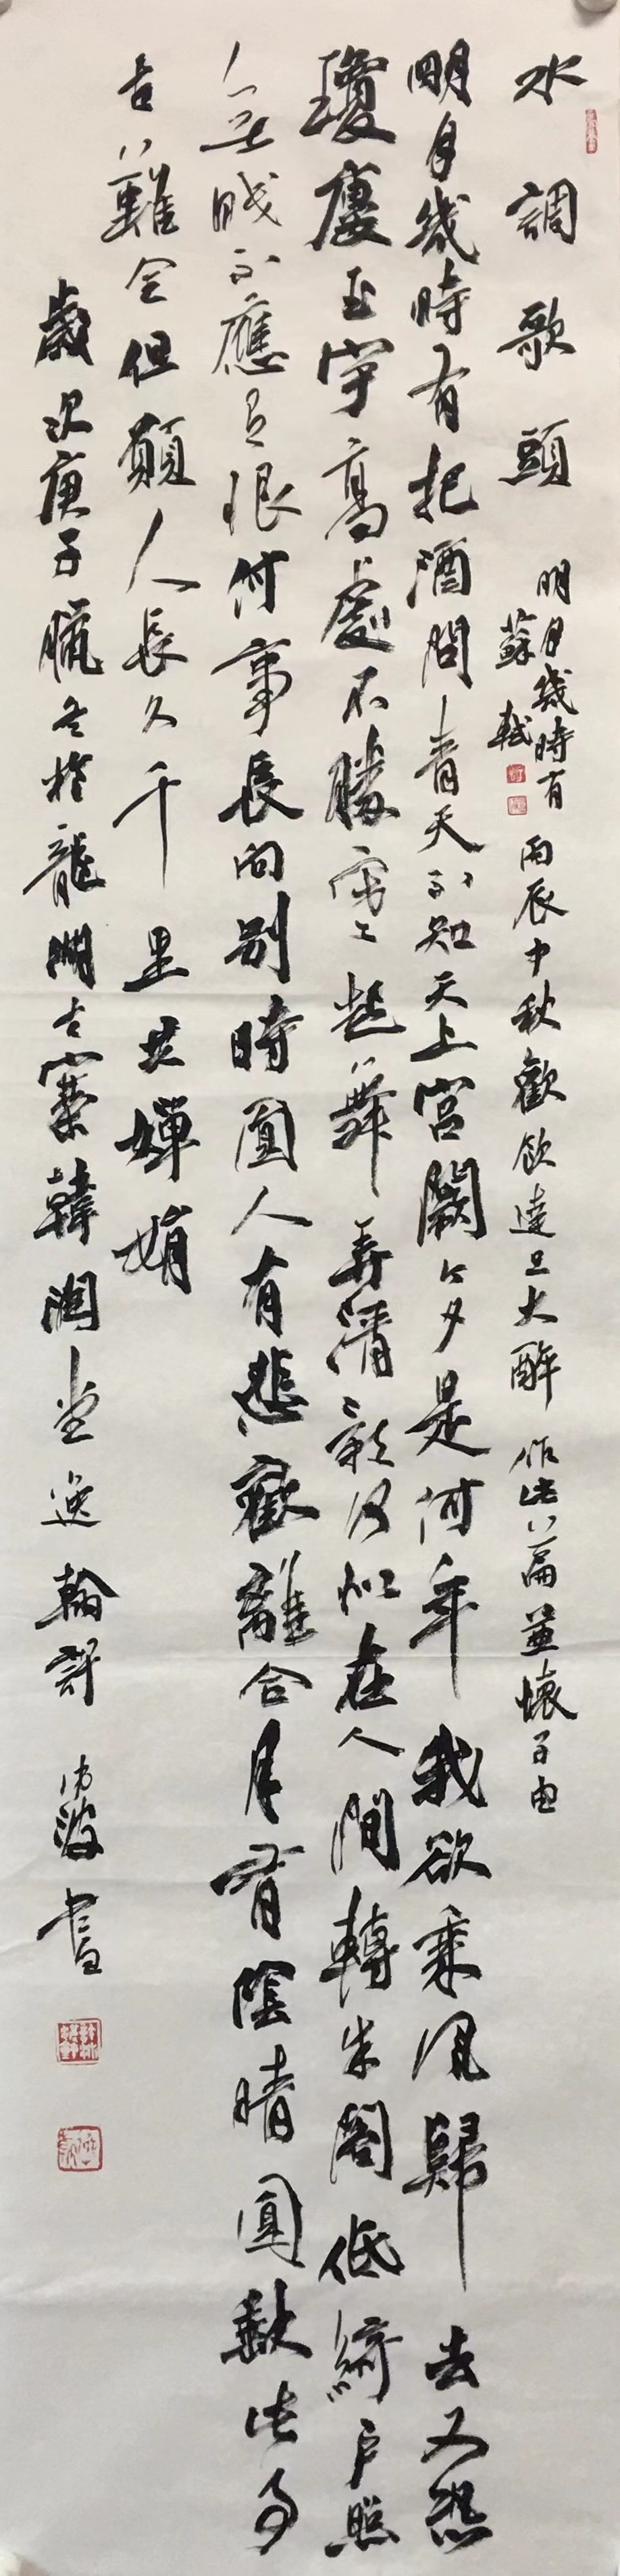 水調歌頭 明月幾時有 蘇軾 丙辰中秋歡飲達旦大醉作此篇並懷子由
明月幾時有把酒問青天不知天上宮闕今夕是何年我欲乘風歸去又恐
瓊廔玉宇高處不勝寒起舞弄清影何似在人間轉朱閣低綺戶照
無眠不應有恨何事長向別時圓人有悲歡離合月有陰晴圓缺此事
古難全但願人長久千里共嬋娟
歲次庚子臘冬於龍湖古寨韓閣堂逸翰軒 波書